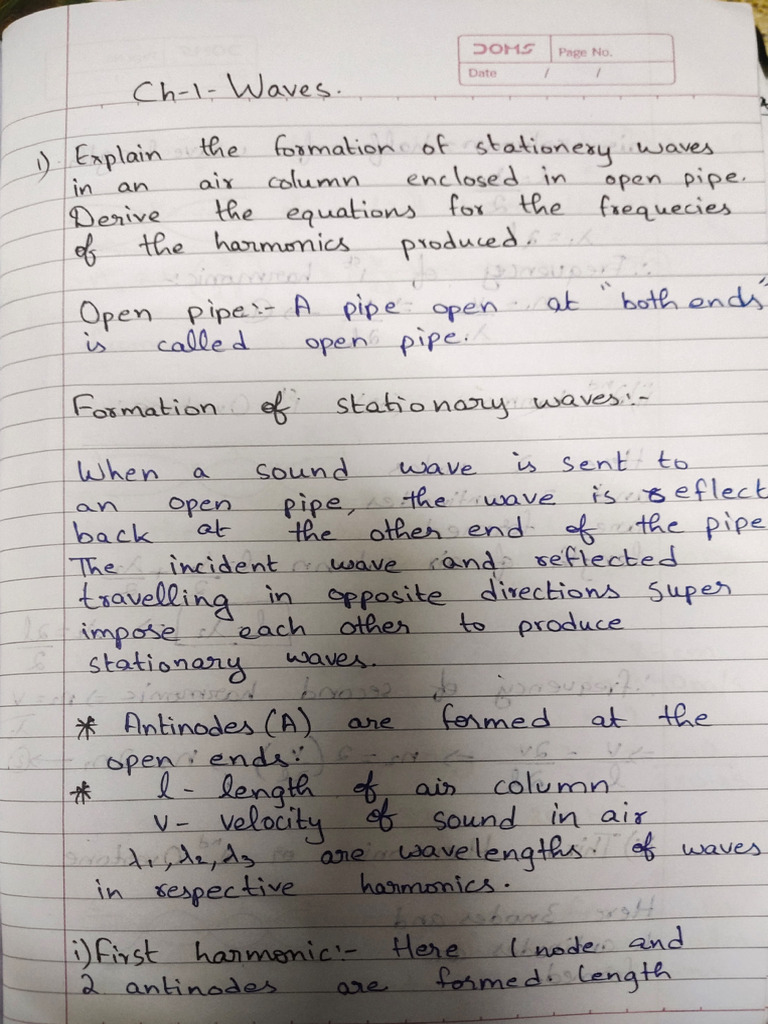 DOMS
Page No.
Date / /
Ch-1- Waves.
1) Explain the formation of stationery waves
in an air column enclosed in open pipe.
Derive the equations for the frequecies
of the harmonics produced.
Open pipe:- A pipe open at "both ends"
is called open pipe.
Formation of stationary waves:-
When a sound wave is sent to
an open pipe, the wave is reflect
back at the other end of the pipe
The incident wave and reflected
travelling in opposite directions super
impose each other to produce
stationary waves.
* Antinodes (A) are formed at the
open ends:
* l - length of air column
v - velocity of sound in air
λ1, λ2, λ3 are wavelengths of waves
in respective harmonics.
i) First harmonic:- Here 1 node and
2 antinodes are formed. Length